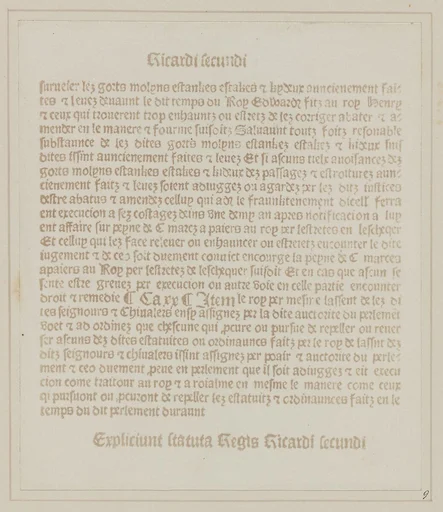 Ricardi secundi
surueier lez gorts molyns estankes estakes & kydeux auncienement fai-
tes & leuez deuaunt le dit temps du Roy Edwarde fitz au roy Henry
& ceux qui trouerent trop enhauntz ou estretz de lez corriger abater & a-
mender en le manere & fourme suisditz Salvaunt toutz foitz resonable
substaunce de lez ditez gorts molyns estankez estakez & kideux suis
dites issint auncienement faites & leuez Et si ascuns tielx anoisancez dez
gorts molyns estankes estakes & kideux dez passagez & estroiturez aun-
cienement faitz & leuez soient adiuggez ou agardez per lez ditz iustices
destre abatus & amendez celluy qui ad le frauntenement dicell ferra
ent execucion a sez costagez deins une demy an apres notificacion a luy
ent affaire sur peyne de C marcz a paiers au roy per lestretes en lescheqer
Et celluy qui lez face releuer ou enhauncer ou estreiez encounter le dite
iugement & de ceo soit duement conuict encourge la peyne de C marces
apaiers au Roy per lestretez de leschequer suisdit Et en cas que ascun se
sente estre greuez per execucion ou autre voie en celle partie encounter
droit & remedie ¶ Ca xx ¶ Item le roy per mesme lassent de lez di
tes seignours & Chiualers ensy assignez per la dite auctorite du perlemet
voet & ad ordinez que chescune qui pcure ou pursue de repeller ou reuer
ser ascuns dez dites estatuites ou ordinaunces faitz per le roy de lassint dez
ditz seignours & chiualers issint assignez per poair & auctorite du perle-
ment & ceo duement pue en perlement que il soit adiuggez & eit execu
cion come traitour au roy & a roialme en mesme le manere come ceux
qi pursuont ou pcuront de repeller lez estatuitz & ordinaunces faitz en le
temps du dit perlement duraunt
Expliciunt statuta Regis Ricardi secundi
9